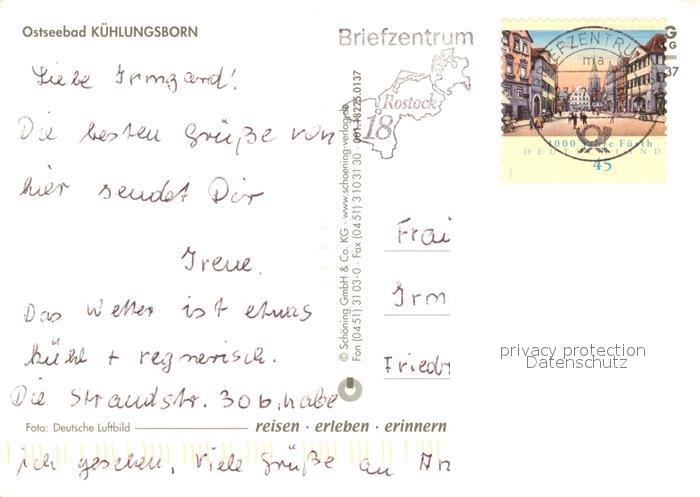 Ostseebad KÜHLUNGSBORN
Liebe Irmgard!
Die besten Grüße von
hier sendet Dir
Irene.
Das Wetter ist etwas
kühl + regnerisch.
Die Strandstr. 30 b, habe
ich gesehen, viele Grüße an An
Foto: Deutsche Luftbild
reisen · erleben · erinnern
© Schöning GmbH & Co. KG · www.schoening-verlag.de
Fon (04 51) 31 03-0 · Fax (04 51) 3 10 31 30 · 001.18225.0137
Briefzentrum
Rostock
18
BRIEFZENTRUM
ma
1000 Jahre Fürth
DEUTSCHLAND
45
Frau
Irm
Friedr
privacy protection
Datenschutz